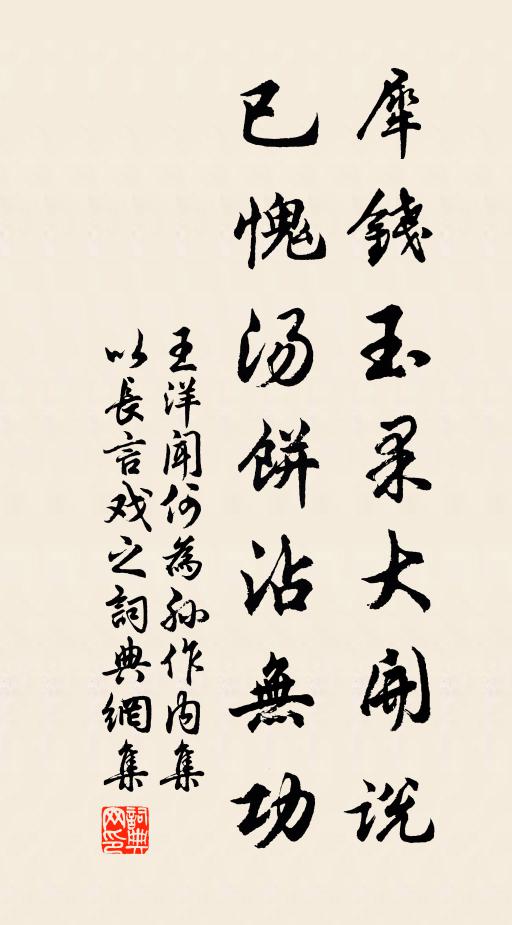 犀錢玉果大開說
已愧湯餅沾無功
王洋聞何為孫作內集
以長言戏之詞典網集
詞典
网印